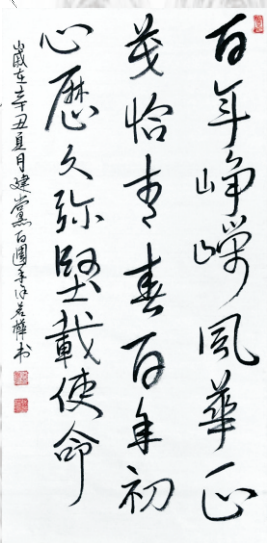 百年崢嶸風華正
茂恰青春百年初
心歷久弥堅載使命
歲在辛丑夏月建黨百周年 若樺书